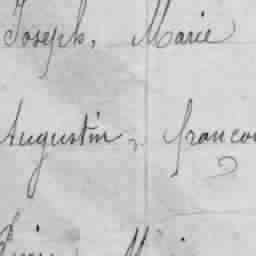 Joseph, Marie
Augustin, francoi